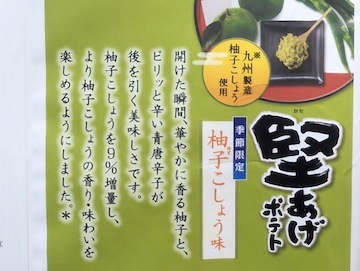 ※
九州製造
柚子こしょう
使用
かた
堅あげ
ポテト
季節限定
ゆず
柚子こしょう味
開けた瞬間、華やかに香る柚子と、
ピリッと辛い青唐辛子が
後を引く美味しさです。
柚子こしょうを9%増量し、
より柚子こしょうの香り・味わいを
楽しめるようにしました。*